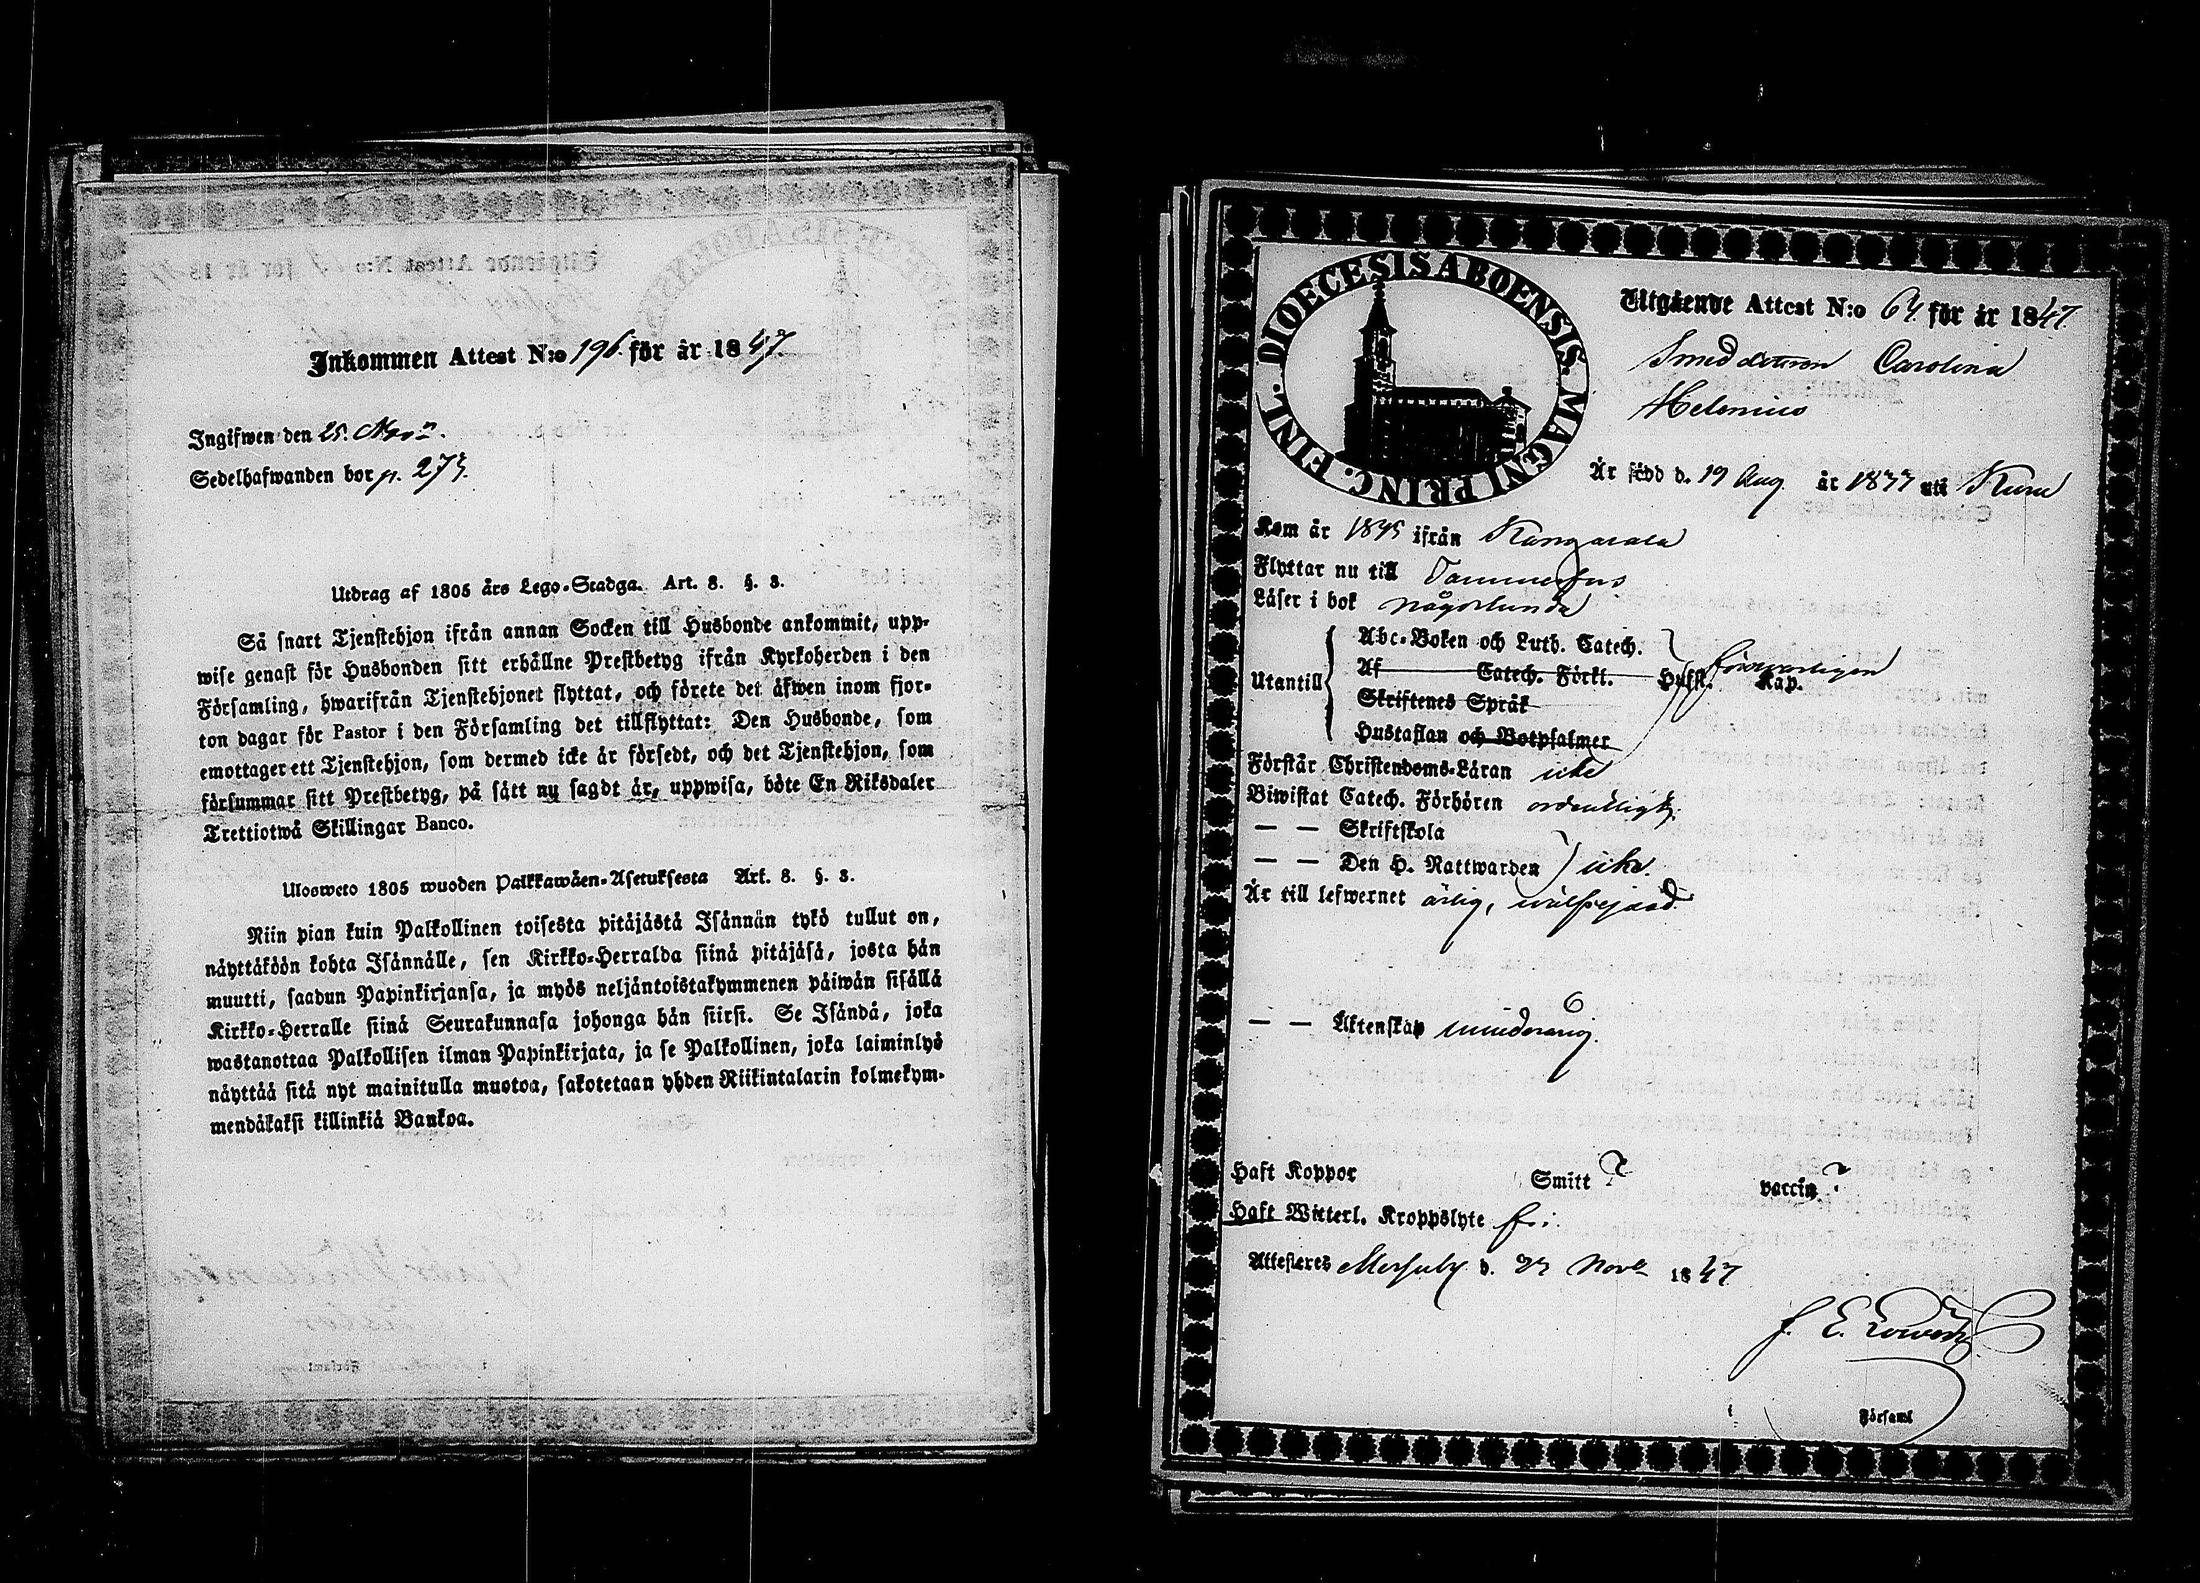 Inkommen Attest N:o 196. för år 1847.
Ingifwen den 25. Nov.
Sedelhafwanden bor p. 273.
Utdrag af 1805 års Lego-Stadga. Art. 8. §. 3.
Så snart Tjenstehjon ifrån annan Socken till Husbonde ankommit, upp-
wise genast för Husbonden sitt erhållne Prestbetyg ifrån Kyrkoherden i den
Församling, hwarifrån Tjenstehjonet flyttat, och förete det äfwen inom fjor-
ton dagar för Pastor i den Församling det tillflyttat: Den Husbonde, som
emottager ett Tjenstehjon, som dermed icke är försedt, och det Tjenstehjon, som
försummar sitt Prestbetyg, på sätt nu sagdt är, uppwisa, böte En Riksdaler
Trettiotwå Skillingar Banco.
Ulosweto 1805 wuoden Palkkawäen-Asetuksesta Art. 8. §. 3.
Niin pian kuin Palkollinen toisesta pitäjästä Isännän tykö tullut on,
näyttäköön kohta Isännälle, sen Kirkko-Herralda siinä pitäjäsä, josta hän
muutti, saadun Papinkirjansa, ja myös neljäntoistakymmenen päiwän sisällä
Kirkko-Herralle siinä Seurakunnasa johonga hän siirsi. Se Isändä, joka
wastanottaa Palkollisen ilman Papinkirjata, ja se Palkollinen, joka laiminlyö
näyttää sitä nyt mainitulla muotoa, sakotetaan yhden Riikintalarin kolmekym-
mendäkaksi killinkiä Bankoa.
DIOECESIS ABOENSIS. MAGNI PRINC. FINL.
Utgående Attest N:o 64. för år 1847.
Smeddottren Carolina
Helenius
Är född d. 19 Aug. år 1833 uti Kuru
Kom år 1845 ifrån Kangasala
Flyttar nu till Tammerfors
Läser i bok någorlunda
Utantill
Abc-Boken och Luth. Catech.
Af Catech. Förkl. Hufst. Kap.
försvarligen
Skriftenes Språk
Hustaflan och Botpsalmer
Förstår Christendoms-Läran icke
Biwistat Catech. Förhören ordentligt.
— — Skriftskola
— — Den H. Nattwarden icke.
Är till lefwernet ärlig, wälfrejdad.
— — Äktenskap minderårig.
Haft Koppor Smitt ? vaccin ?
Haft Witterl. Kroppslyte fri.
Attesteras Messuby d. 23 Nov. 1847.
Församl